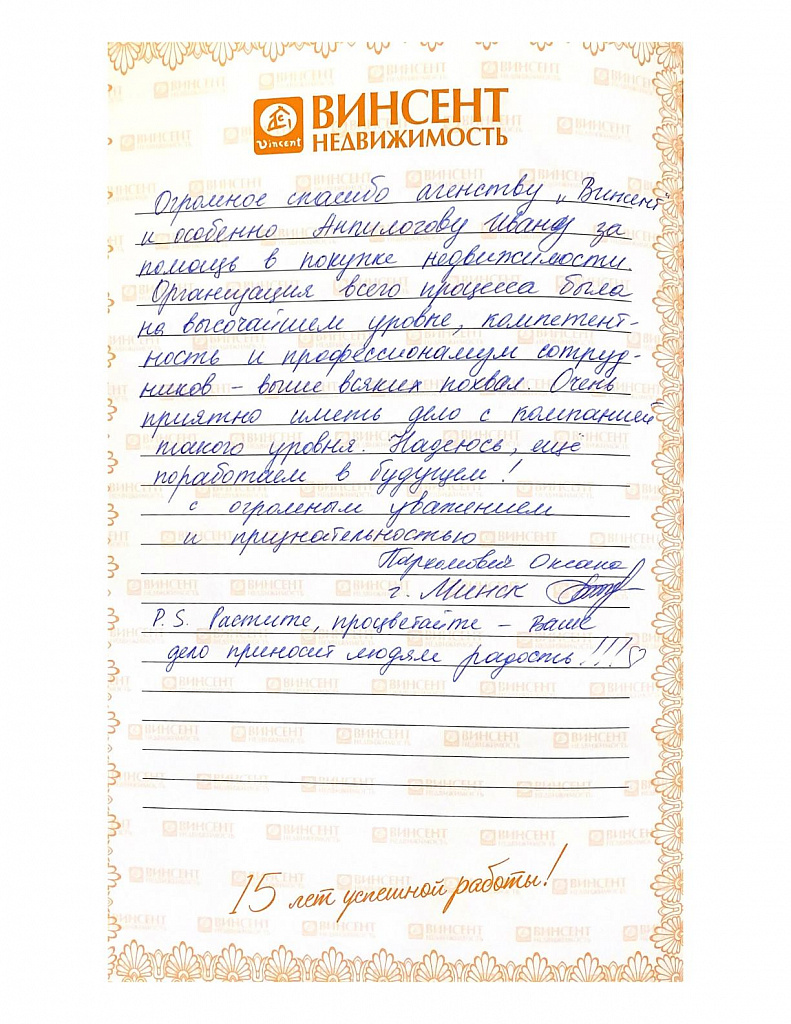 Vincent
ВИНСЕНТ
НЕДВИЖИМОСТЬ
Огромное спасибо агенству „Винсент"
и особенно Анпилогову Ивану за
помощь в покупке недвижимости.
Организация всего процесса была
на высочайшем уровне, компетент-
ность и профессионализм сотруд-
ников – выше всяких похвал. Очень
приятно иметь дело с компанией
такого уровня. Надеюсь, ещё
поработаем в будущем!
с огромным уважением
и признательностью
Пархомович Оксана
г. Минск
P. S. Растите, процветайте – Ваше
дело приносит людям радость!!!
15 лет успешной работы!